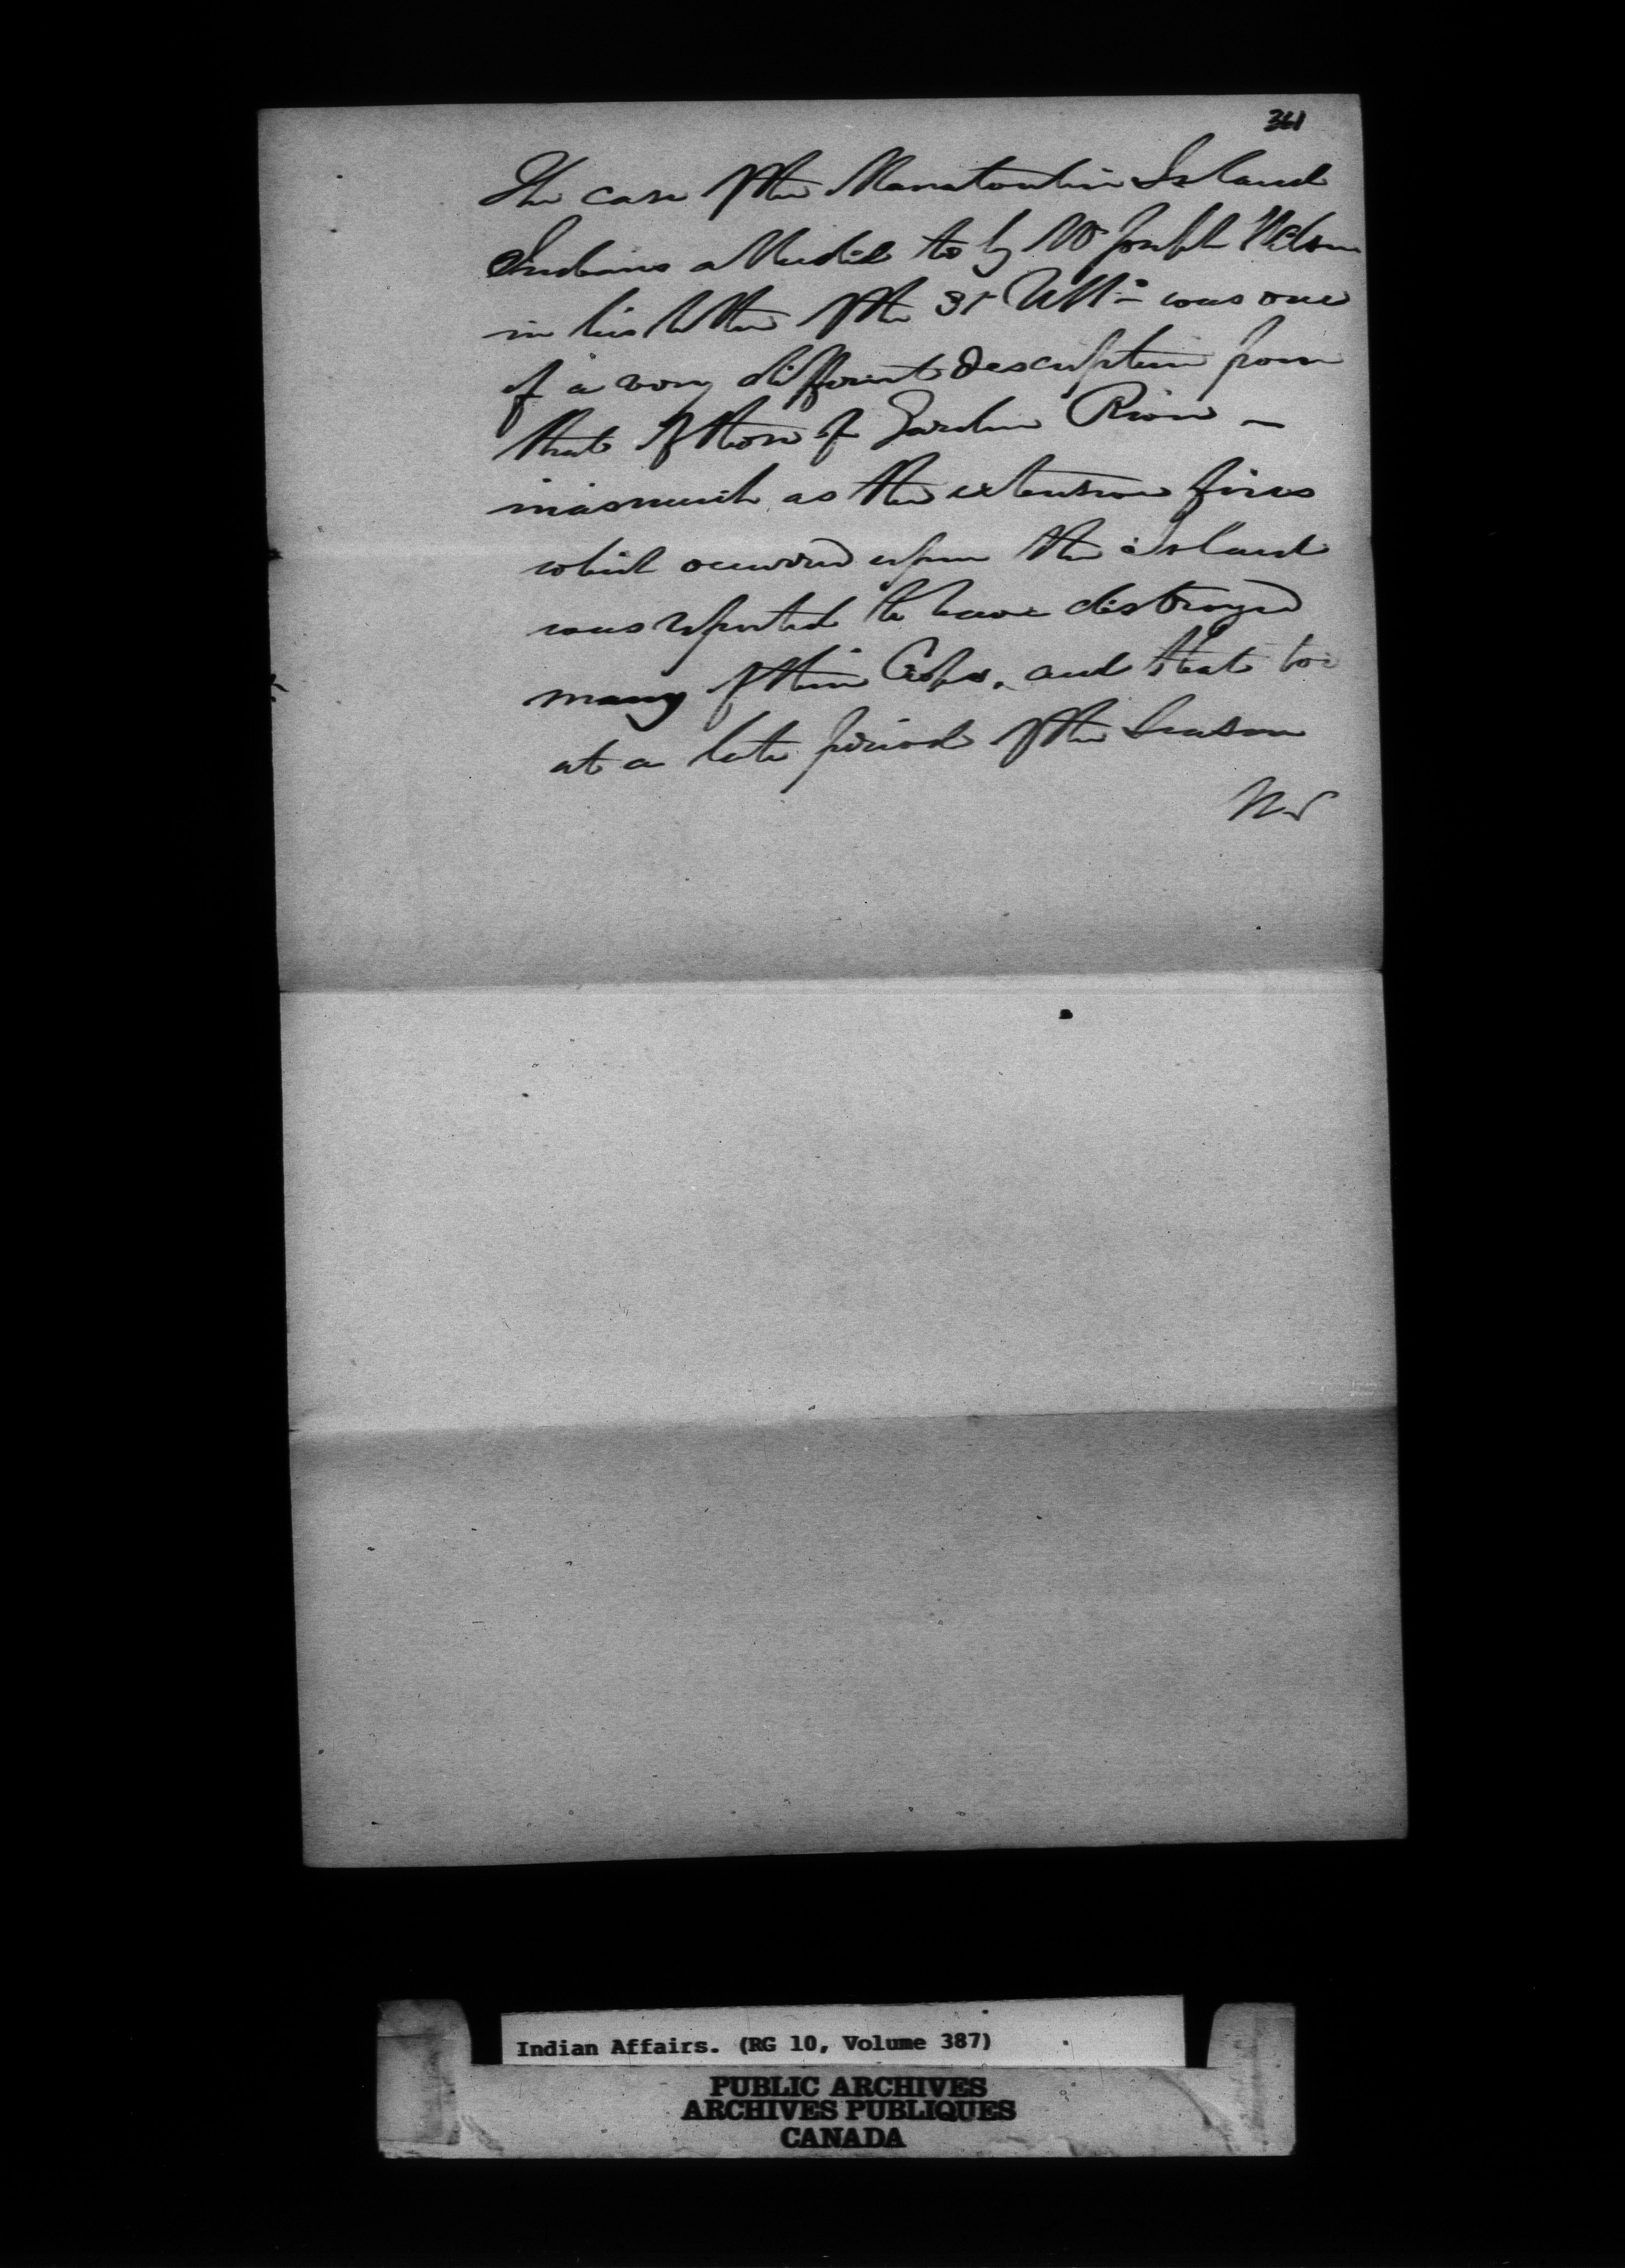 361
The case of the Manatoulin Island
Indians alluded to by Mr Joseph Wilson
in his letter of the 31 Ulto was one
of a very different description from
that of those of Garden River —
inasmuch as the extensive fires
which occurred upon the island
was reported to have destroyed
many of their Crops, and that too
at a late period of the Season
Indian Affairs. (RG 10, Volume 387)
PUBLIC ARCHIVES
ARCHIVES PUBLIQUES
CANADA